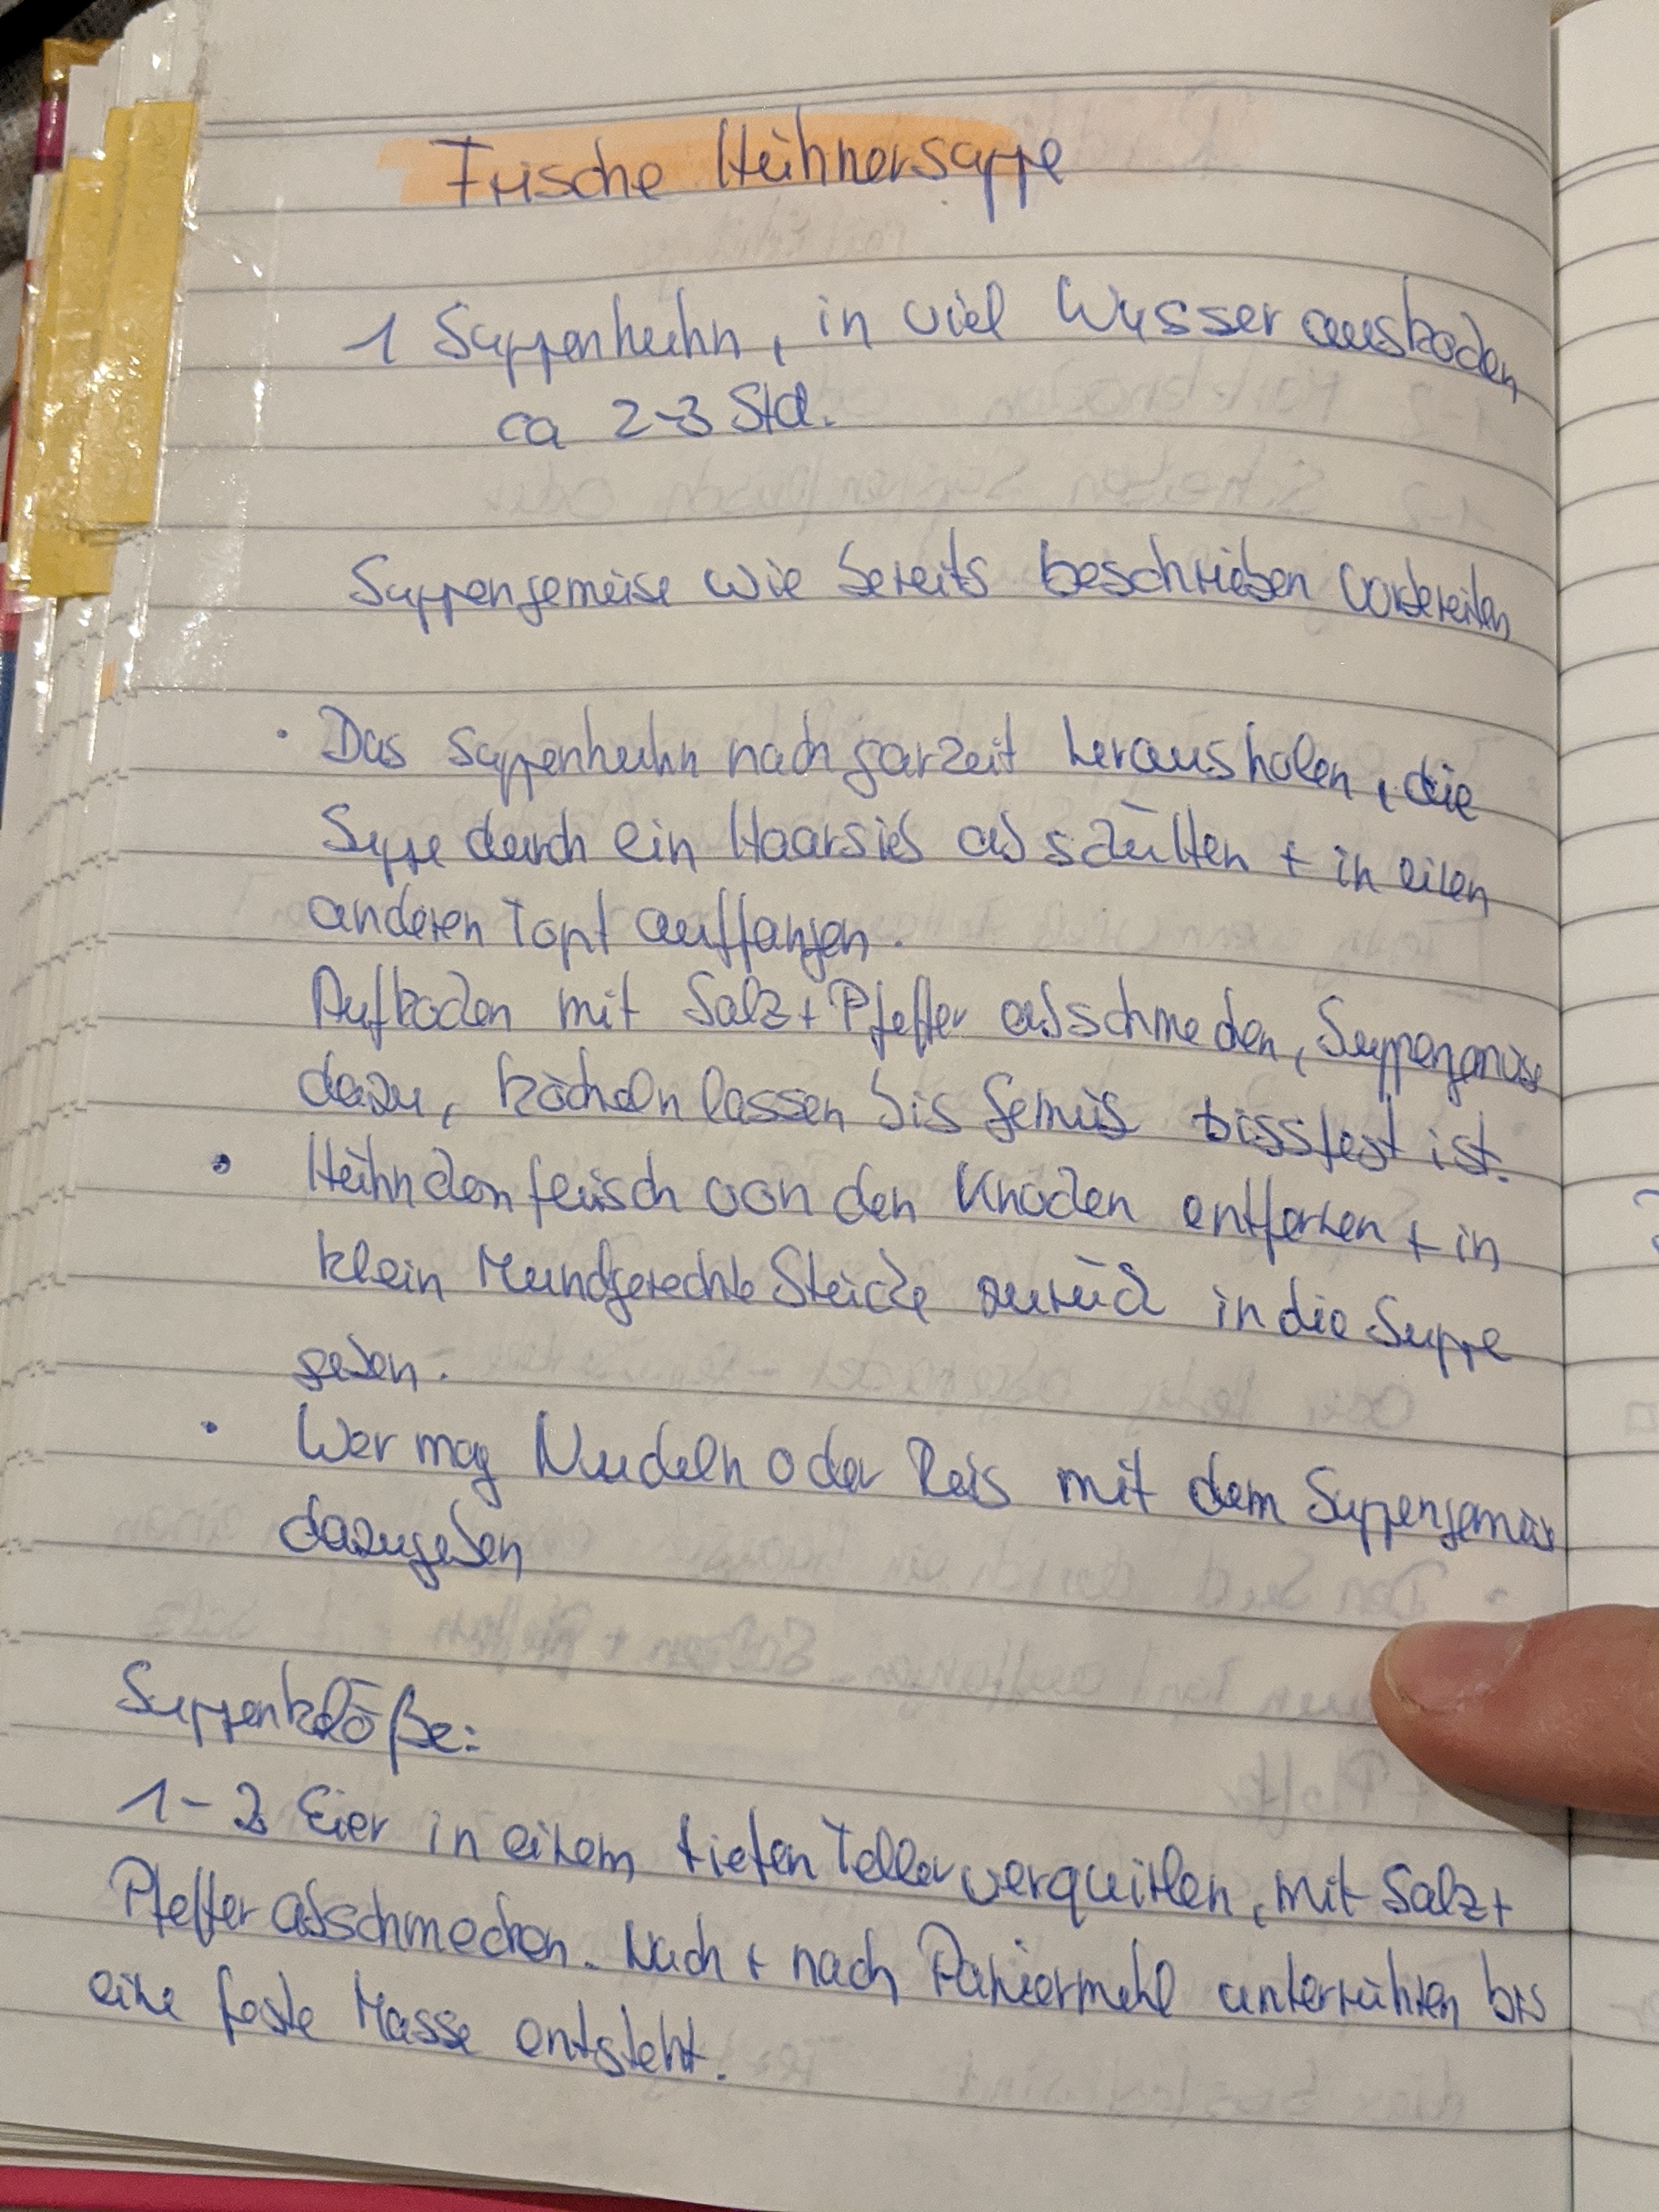 Frische Hühnersuppe
1 Suppenhuhn, in viel Wasser auskochen
ca 2-3 Std.
Suppengemüse wie bereits beschrieben vorbereiten
· Das Suppenhuhn nach garzeit herausholen, die
Suppe durch ein Haarsieb abschütten + in einen
anderen Topf auffangen.
Aufkochen mit Salz + Pfeffer abschmecken, Suppengemüse
dazu, köcheln lassen bis Gemüse bissfest ist.
· Hühnchenfleisch von den Knochen entfernen + in
klein Mundgerechte Stücke zurück in die Suppe
geben.
· Wer mag Nudeln oder Reis mit dem Suppengemüse
dazugeben
Suppenklöße:
1-2 Eier in einem tiefen Teller verquirlen, mit Salz +
Pfeffer abschmecken. Nach + nach Paniermehl unterrühren bis
eine feste Masse entsteht.